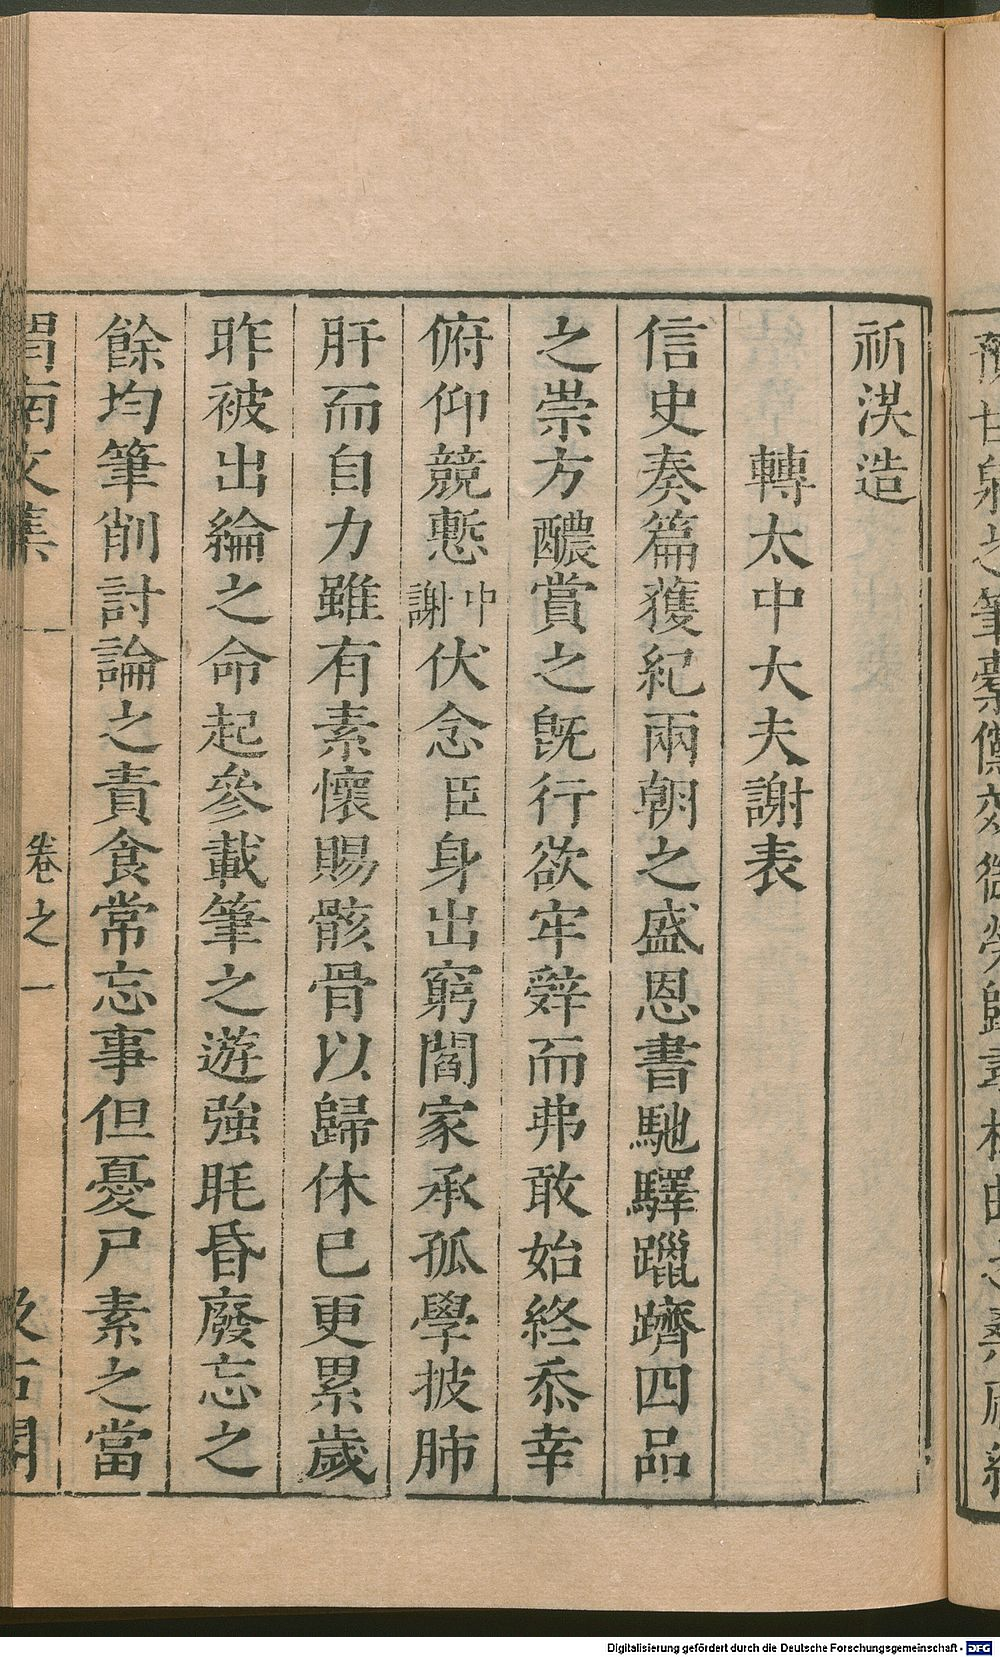 祈淇造
轉太中大夫謝表
信史奏篇獲紀兩朝之盛恩書馳驛躐躋四品
之崇方醲賞之旣行欲牢辤而弗敢始終忝幸
俯仰競慙中謝伏念臣身出窮閻家承孤學披肺
肝而自力雖有素懷賜骸骨以歸休已更累歲
昨被出綸之命起參載筆之遊強眊昏廢忘之
餘均筆削討論之責食常忘事但憂尸素之當
渭南文集 卷之一 汲古閣
Digitalisierung gefördert durch die Deutsche Forschungsgemeinschaft - DFG